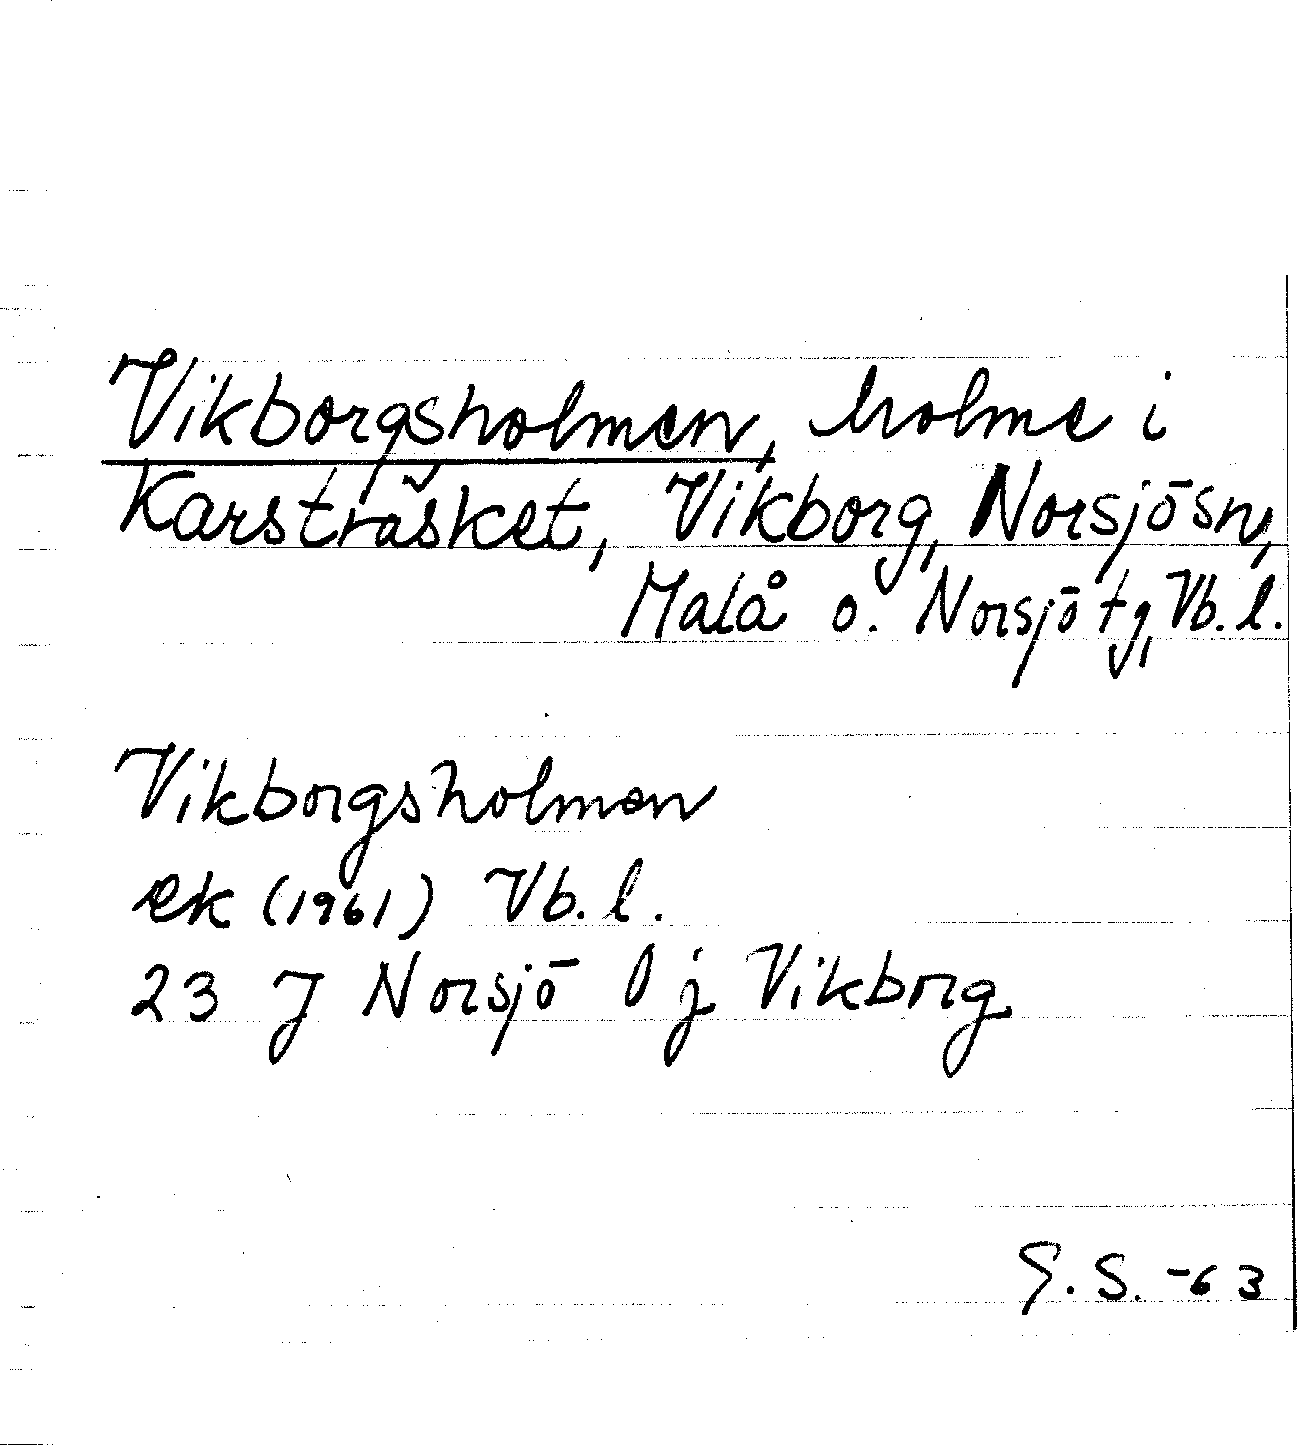 Vikborgsholmen, holme i
Karsträsket, Vikborg, Norsjö sn,
Malå o. Norsjö tg, Vb. l.
Vikborgsholmen
ek (1961) Vb. l.
23 J Norsjö l j Vikborg
G. S. -63